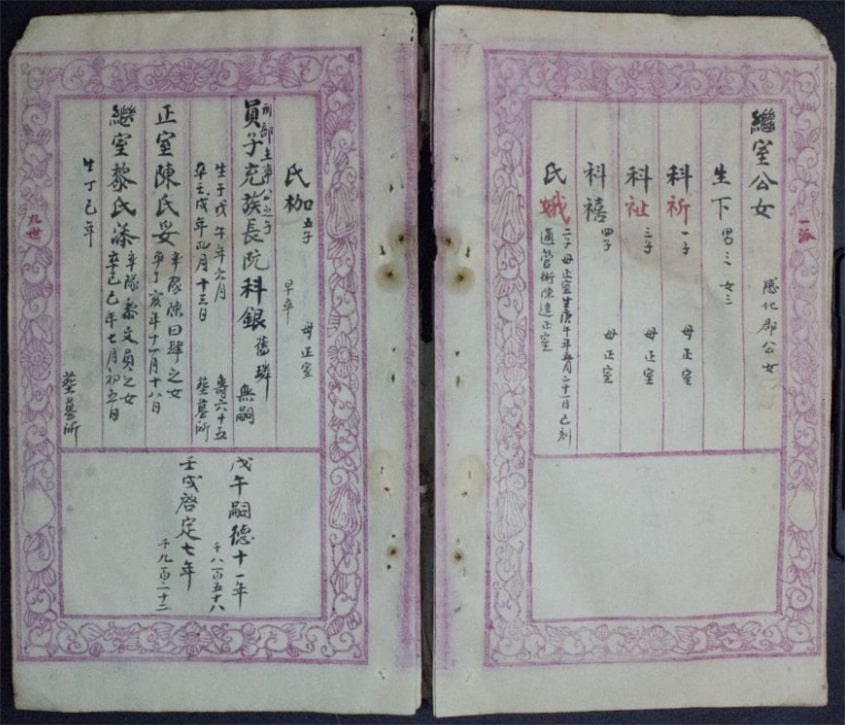 一派
繼室公女 感化郡公女
生下 男三 女三
科祈 一子 母正室
科祉 三子 母正室
科禧 四子 母正室
氏娥 二子母正室生庚午年五月二十一日巳刻
適管衛陳達正室
氏枷 五子 早卒 母正室
刑部主事公之子
員子充族長阮科銀 舊璘 無嗣
生于戊午年六月 壽六十五
卒壬戌年四月十三日 葬墓所
正室陳氏妥 率隊陳曰肆之女
卒丁亥年十一月十八日
繼室黎氏添 率隊黎文員之女
卒己巳年七月初五日
生丁巳年 葬墓所
九世
戊午嗣德十一年
千八百五十八
壬戌啓定七年
千九百二十二